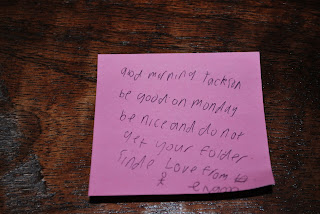 good morning Jackson
be good on monday
be nice and do not
get your folder
Love from